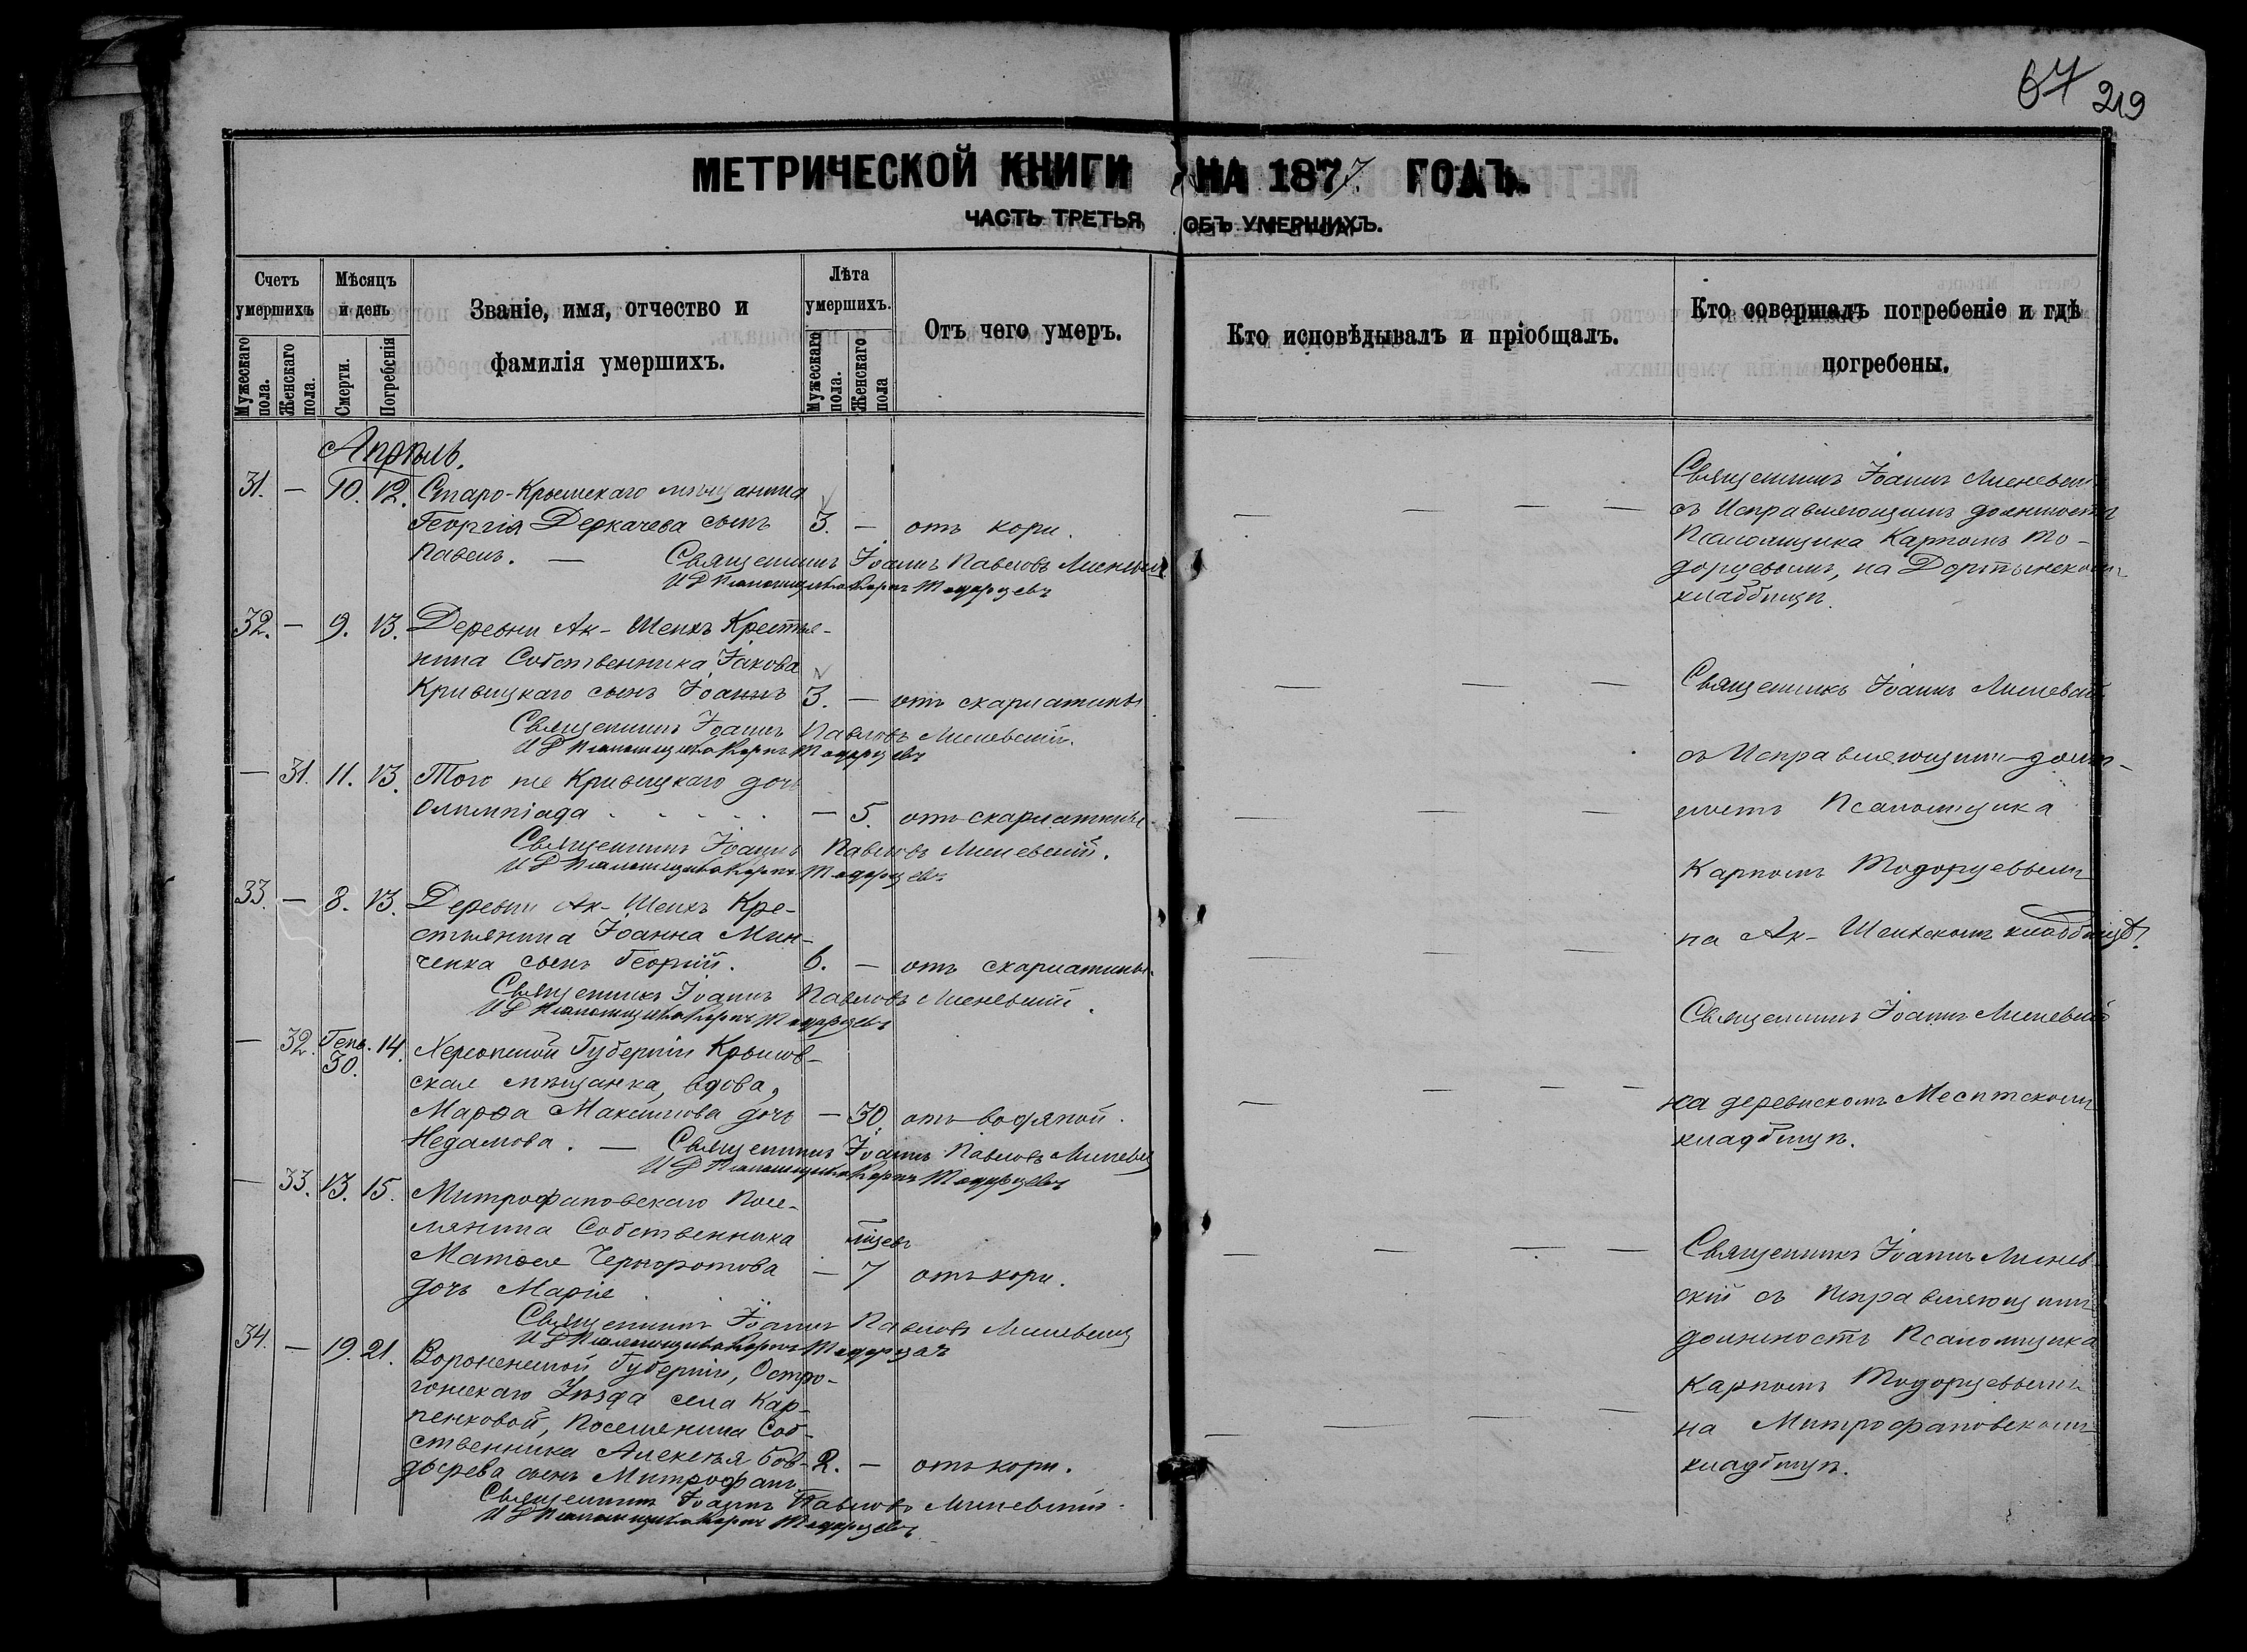 67 219
МЕТРИЧЕСКОЙ КНИГИ НА 1877 ГОДЪ.
ЧАСТЬ ТРЕТЬЯ, ОБЪ УМЕРШИХЪ.
Счетъ умершихъ
Мужескаго пола.
Женскаго пола.
Мѣсяцъ и день
Смерти.
Погребенія
Званіе, имя, отчество и
фамилія умершихъ.
Лѣта умершихъ.
Мужескаго пола.
Женскаго пола
Отъ чего умеръ.
Кто исповѣдывалъ и пріобщалъ.
Кто совершалъ погребеніе и гдѣ
погребены.
Апрѣль.
31. — 10. 12. Старо-Крымскаго мѣщанина
Георгія Деркачева сынъ 3. — отъ кори.
Павелъ. — Священникъ Іоаннъ Павловъ
И Д Псаломщика Карпъ Тодорцевъ
Священникъ Іоаннъ
съ Исправляющимъ должность
Псаломщика Карпомъ То-
дорцевымъ, на
кладбищѣ.
32. — 9. 13. Деревни Ак-Шеихъ Крестья-
нина Собственника Іакова
Кривицкаго сынъ Іоаннъ 3. — отъ скарлатины
Священникъ Іоаннъ Павловъ
И Д Псаломщика Карпъ Тодорцевъ
— 31. 11. 13. Того же Кривицкаго дочь
Олимпіада — 5. отъ скарлатины
Священникъ Іоаннъ Павловъ
И Д Псаломщика Карпъ Тодорцевъ
33. — 8. 13. Деревни Ак-Шеихъ Кре-
стьянина Іоанна Мин-
ченка сынъ Георгій. 6. — отъ скарлатины.
Священникъ Іоаннъ Павловъ
И Д Псаломщика Карпъ Тодорцевъ
Священникъ Іоаннъ
съ Исправляющимъ долж-
ность Псаломщика
Карпомъ Тодорцевымъ
на Ак-Шеихскомъ кладбищѣ.
— 32. Генв. 30. 14. Херсонской Губерніи Крылов-
ская мѣщанка, вдова,
Марѳа Максимова дочь — 30. отъ водяной.
Недамова. — Священникъ Іоаннъ Павловъ
И Д Псаломщика Карпъ Тодорцевъ
Священникъ Іоаннъ
на деревнскомъ
кладбищѣ.
— 33. 13. 15. Митрофановскаго Посе-
лянина Собственника мѣсяц
Матѳея Черноротова — 7 отъ кори.
дочь Марія
Священникъ Іоаннъ Павловъ
И Д Псаломщика Карпъ Тодорцевъ
34. — 19. 21. Воронежской Губерніи, Остро-
гожскаго Уѣзда села Кар-
пенковой, Поселянина Соб-
ственника Алексѣя Бов-
дырева сынъ Митрофанъ 2. — отъ кори.
Священникъ Іоаннъ Павловъ
И Д Псаломщика Карпъ Тодорцевъ
Священникъ Іоаннъ
съ Исправляющимъ
должность Псаломщика
Карпомъ Тодорцевымъ
на Митрофановскомъ
кладбищѣ.